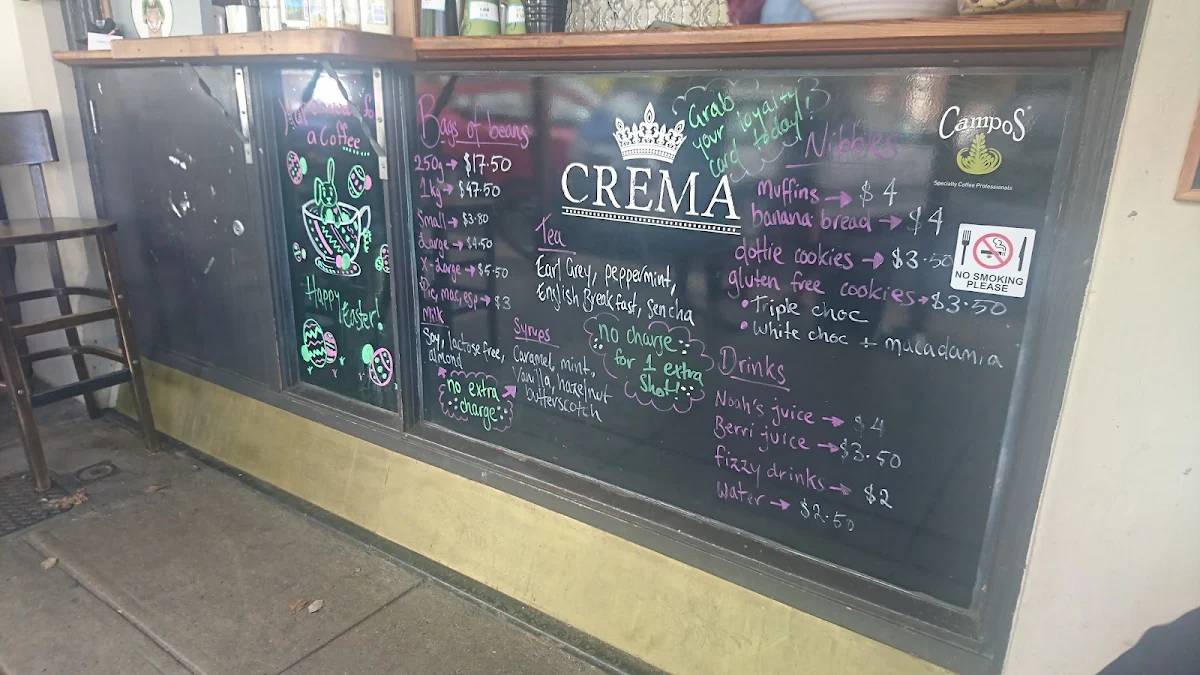 a Coffee
Happy
Easter!
Bags of beans
250g → $17.50
1kg → $47.50
Small → $3.80
Large → $4.50
X-Large → $5.50
Pic, mac, esp → $3
Milk
Soy, lactose free,
almond
no extra
charge
Tea
Earl Grey, peppermint,
English Breakfast, Sencha
Syrups
Caramel, mint,
Vanilla, hazelnut
butterscotch
no charge
for 1 extra
Shot!
CREMA
Grab
your loyalty
card today!
Nibbles
Muffins → $4
banana bread → $4
dottie cookies → $3.50
gluten free cookies → $3.50
• Triple choc
• White choc + macadamia
Drinks
Noah's juice → $4
Berri juice → $3.50
fizzy drinks → $2
Water → $2.50
CampoS
Specialty Coffee Professionals
NO SMOKING
PLEASE